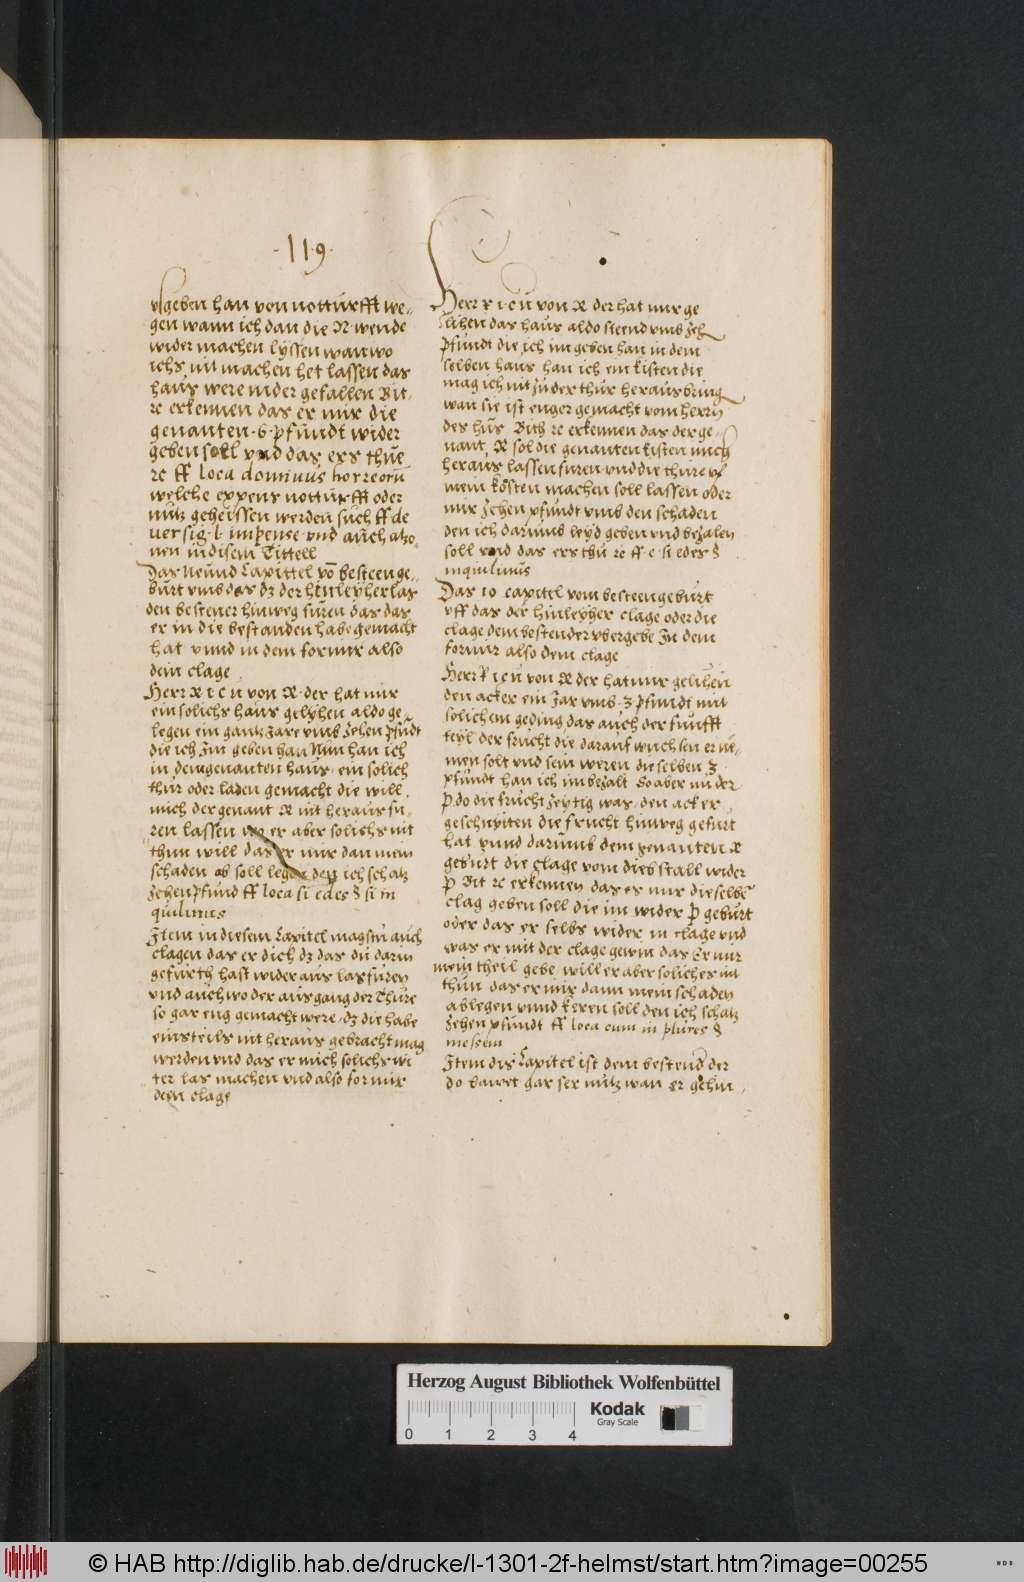 ·119·
vßgeben han von notturfft we-
gen wann ich dan die N wende
wider machen lyssen wan wo
ichs nit machen het lassen das
haus were nider gefallen Bit-
tc erkennen das er mir die
genanten ·6· pfundt wider
geben soll vnd das ers thue
tc ff loca dominus horreorū
welche expens notturfft oder
nutz geheissen werden such ff de
ver sig l impense vnd auch also
nen in disem Tittell
Das Neund Capittel vō besteen ge-
burt vmb das dz der hinleyher las
den bestener hinweg furen das das
er in die bestanden habe gemacht
hat vnnd in dem formir also
dein clage
Herr R i c n von R· der hat mir
ein solichs haus gelyhen aldo ge-
legen ein gantz Jare vmb zehen pfūdt
die ich Im geben han Nun han ich
in dem genanten haus ein solich
thur oder laden gemacht die will
mich der genant R nit heraus fu-
ren lassen wo er aber solichs nit
thun will das er mir dan mein
schaden ab soll legen den ich schatz
zehen pfund ff loca si edes § si in
quilinus
Item in diesem Capitel magstu auch
clagen das er dich dz das du darin
gefurth hast wider aus las furen
vnd auch wo der ausgang der Thure
so gar eng gemacht were dz die habe
eins teils nit heraus gebracht mag
werden vnd das er mich solichs wi
ter las machen vnd also formir
dein clage
Herr R i c n von R der hat mir ge
lihen das haus aldo steend vmb zeh
pfundt die ich im geben han in dem
selben haus han ich ein kisten die
mag ich nit zu der thur heraus bring
wan sie ist enger gemacht vom herrn
des hus Bith tc erkennen das der ge-
nant R sol die genanten kisten mich
heraus lassen furen vnd die thure vf
mein kosten machen soll lassen oder
mir zehen pfundt vmb den schaden
den ich darumb leyd geben vnd bezalen
soll vnd das ers thu tc ff e si edes §
inquilinus
Das 10 capitel vom besteen geburt
vff das der hinleyher clage oder die
clage dem bestender vbergebe Zu dem
formir also dein clage
Herr R i c n von R der hat mir gelihen
den acker ein Jar vmb 3 pfundt mit
solichem geding das auch der funfft
teyl der frucht die darauf wuchsen er ne-
men solt vnd sein weren die selben 3
pfundt han ich im bezalt So aber nu der
P do die frucht zeytig was den acker
geschnyten die frucht hinweg gefurt
hat vnnd darumb dem genanten R
geburt die clage vom diebstall wider
P Bit tc erkennen das er mir dieselbē
clag geben soll die im wider P geburt
oder das er selbs wider in clage vnd
was er mit der clage gewin das Er mir
mein theil gebe will er aber soliches nit
thun das er mir dann mein schaden
ablegen vnnd keren soll den ich schatz
zehen pfundt ff loca cum in plures §
messem
Item dis Capitel ist dem bestend der
do bauert gar ser nutz wan er gehin
Herzog August Bibliothek Wolfenbüttel
Kodak
Gray Scale
0 1 2 3 4
© HAB http://diglib.hab.de/drucke/l-1301-2f-helmst/start.htm?image=00255
WDB